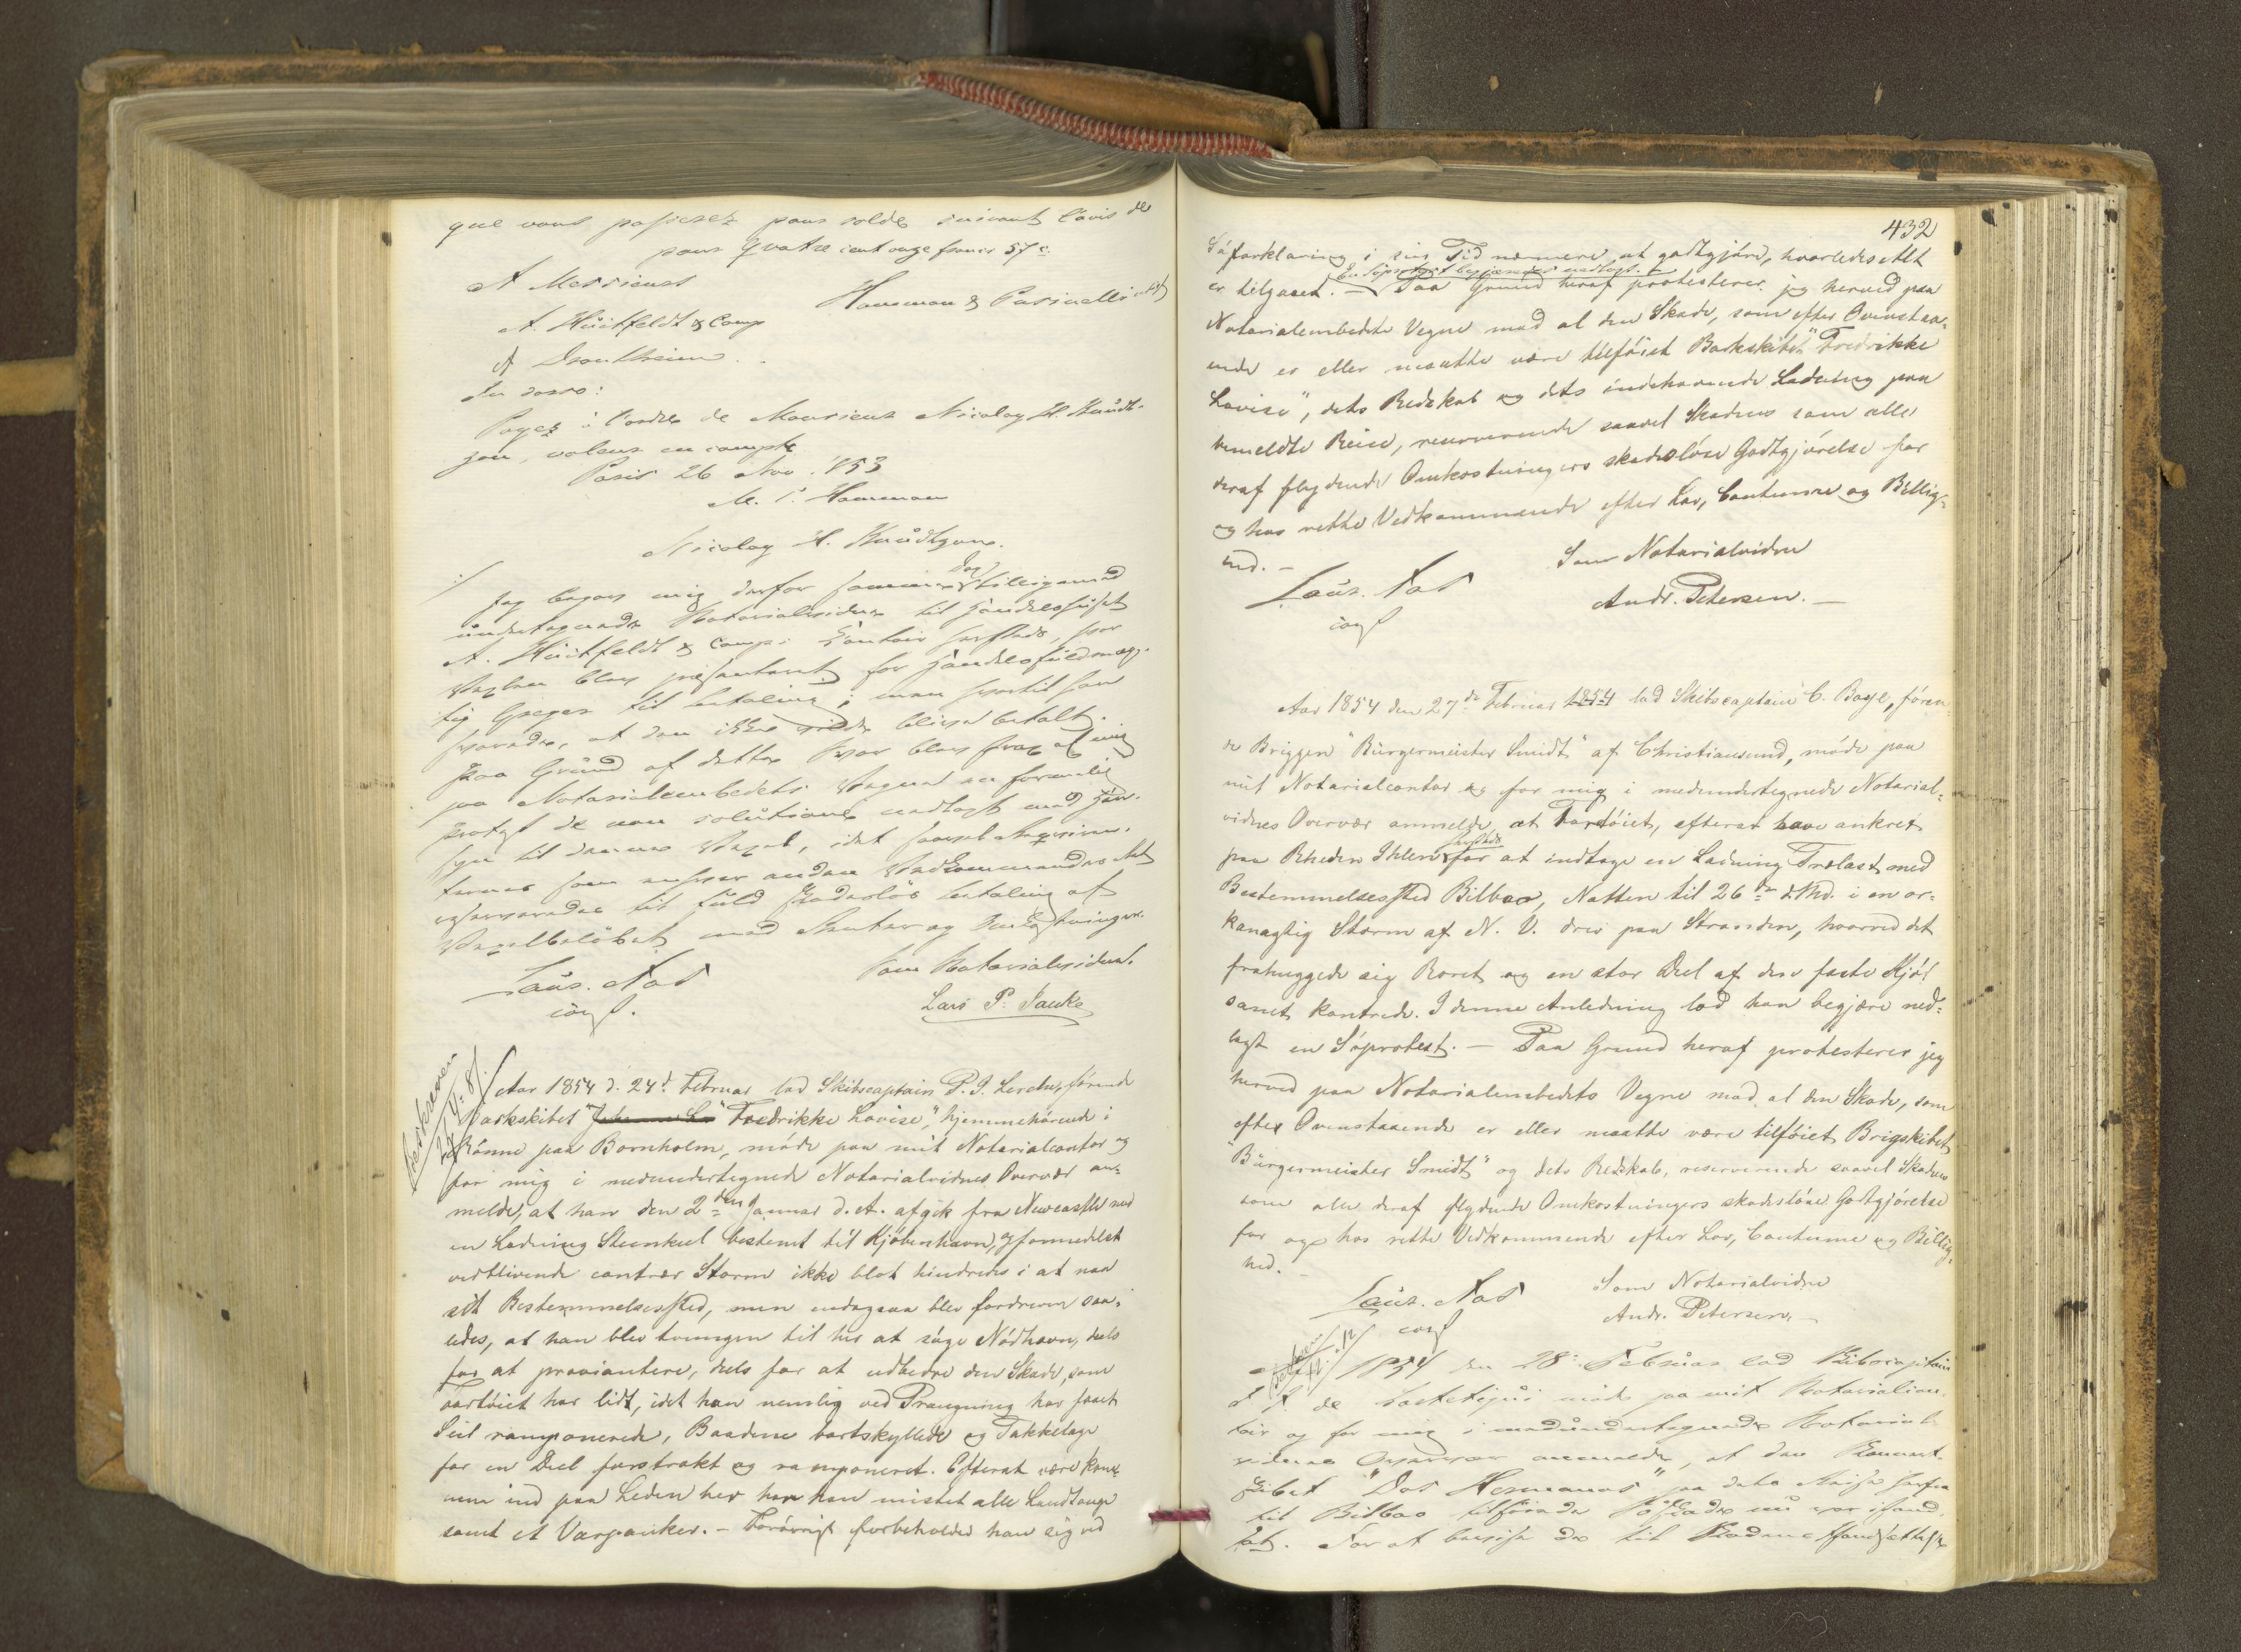 que vous passerez pour solde suivant l'avis de
pour Quatre cent onze francs 57 c.
A Messieurs
Hamman & Pasinelli
A. Huitfeldt & Comp
A Drontheim.
Au verso:
Payez à l'ordre de Monsieur Nicolay H. Knudt-
zon, valeur en compte
Paris 26 Nov. 1853
Nicolay H. Knudtzon.
Jeg begav mig derfor samme Dag tilligemed
undertegnede Notarialvidner til Handelshuset
A. Huitfeldt & Comps Contoir hersteds, hvor
Vexlen blev præsenteret for Handelsfuldmæg-
tig til betaling; men hvortil han
svarede, at den ikke vilde blive betalt.
Paa Grund af dette Svar blev herved af mig
paa Notarialembedets Vegne en formelig
Protest de non solutione nedlagt med Hen-
syn til denne Vexel, idet saavel
som enhver anden Vedkommendes Ret
reserveredes til fuld skadeslös betaling af
Vexelbelöbet med Renter og Omkostninger.
Laur. Not
Som Notarialvidne.
Lars P.
Beskreven
Aar 1854 d. 24d Februar lod Skibscaptain P. J. Lerche, förende
Barkskibet "Fredrikke Lovise", hjemmehörende i
Rönne paa Bornholm, möde paa mit Notarialcontor og
for mig i medundertegnede Notarialvidnes Overvær an=
melde, at han den 2den Januar d. A. afgik fra Newcastle med
en Ladning Steenkul bestemt til Kjöbenhavn, og formedelst
vedblivende contrær Storm ikke blot hindredes i at naa
sit Bestemmelsessted, men endogsaa blev fordreven saa=
ledes, at han blev tvungen til her at söge Nödhavn, deels
for at proviantere, deels for at udbedre den Skade, som
Fartöiet har lidt, idet han nemlig ved Prangning har faaet
Seil ramponerede, Baadene bortskyllede og Takkelage
for en Deel forstrakt og ramponeret. Efterat være kom=
men ind paa Leden her har han mistet alle Landtouge
samt et Varpanker. - Forövrigt forbeholder han sig ved
432
Söforklaring i sin Tid nærmere at godtgjöre, hvorledes Alt
En Söprotest begjæredes nedlagt.
er tilgaaet. - Paa Grund heraf protesterer jeg herved paa
Notarialembedets Vegne mod al den Skade, som efter Ovenstaa=
ende er eller maatte være tilföiet Barkskibet "Fredrikke
Lovise", dets Redskab og dets indehavende Ladning paa
bemeldte Reise, reserverende saavel Skadens som alle
deraf flydende Omkostningers skadeslöse Godtgjörelse for
og hos rette Vedkommende efter Lov, Coutume og Billig=
hed. -
Som Notarialvidne
Laur. Not
Andr. Petersen. -
Aar 1854 den 27de Februar 1854 lod Skibscaptain C. Boye, fören=
de Briggen "Bürgermeister Smidt" af Christiansund, möde paa
mit Notarialcontor og for mig i medundertegnede Notarial=
vidnes Overvær anmelde, at Fartöiet, efterat have ankret
paa Rheden Ihlen hersteds for at indtage en Ladning Trælast med
Bestemmelsessted Bilbao, Natten til 26de d. Md. i en or=
kanagtig Storm af N. V. drev paa Stranden, hvorved det
frahuggede sig Roret og en stor Deel af den faste Kjöl
samt kantrede. I denne Anledning lod han begjære ned=
lagt en Söprotest. - Paa Grund heraf protesterer jeg
herved paa Notarialembedets Vegne mod al den Skade, som
efter Ovenstaaende er eller maatte være tilföiet Brigskibet
"Bürgermeister Smidt" og dets Redskab, reserverende saavel Skadens
som alle deraf flydende Omkostningers skadeslöse Godtgjörelse
for og hos rette Vedkommende efter Lov, Coutume og Billig=
hed. -
Som Notarialvidne
Laur. Not
Andr. Petersen. -
1854 den 28: Februar lod Skibscapitain
de möde paa mit Notarialcon-
toir og for mig i medundertegnede Notarial-
vidnes Overvær anmelde, at den
Skibet "Dos Hermanos" paa dets Reise herfra
til Bilbao tilföiede Söskade nu var istand-
sat. For at bevise de til Skadens Istandsættelse